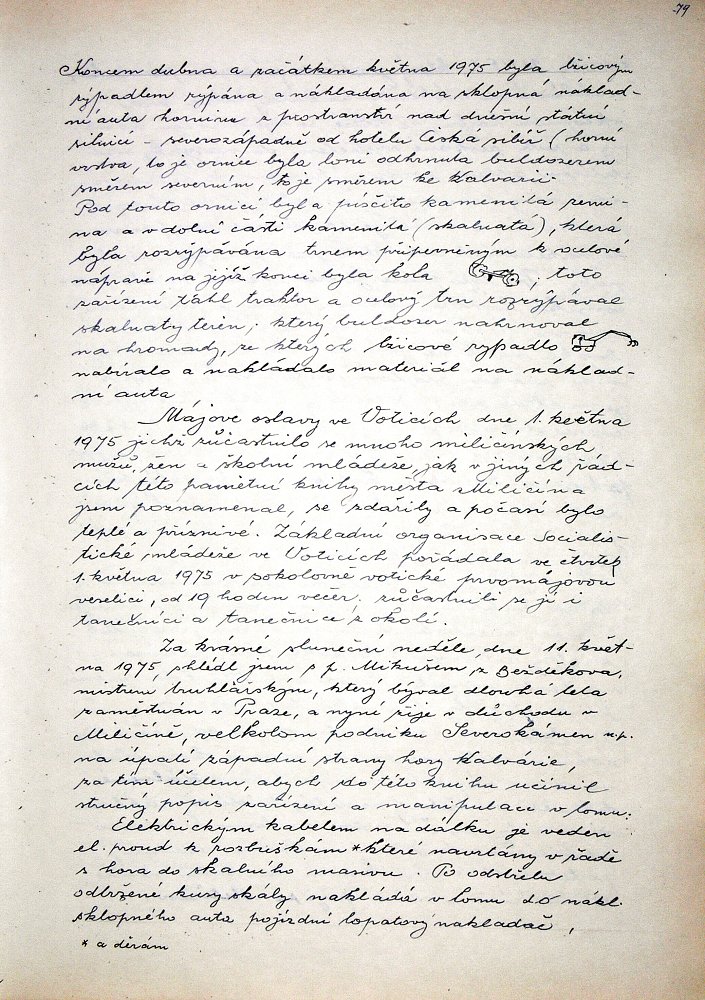 79
Koncem dubna a začátkem května 1975 byla lžicovým
rýpadlem rýpána a nakládána na sklopná náklad-
ní auta hornina z prostranství nad dnešní státní
silnicí - severozápadně od hotelu Česká sibiř (horní
vrstva, to je ornice byla loni odhrnuta buldozerem
směrem severním, to je směrem ke Kalvarii.
Pod touto ornicí byla písčito kamenitá zemi-
na a v dolní části kamenitá (skalnatá), která
byla rozrýpávána trnem připevněným k ocelové
nápravě na jejíž konci byla kola ; toto
zařízení táhl traktor a ocelový trn rozrýpával
skalnatý terén; který buldoser nahrnoval
na hromady, ze kterých lžicové rypadlo
nabíralo a nakládalo materiál na náklad-
ní auta
Májové oslavy ve Voticích dne 1. května
1975 jichž zúčastnilo se mnoho miličínských
mužů, žen a školní mládeže, jak v jiných řád-
cích této pamětní knihy města Miličína
jsem poznamenal, se zdařily a počasí bylo
teplé a příznivé. Základní organisace Socialis-
tické mládeže ve Voticích pořádala ve čtvrtek
1. května 1975 v sokolovně votické prvomájovou
veselici, od 19 hodin večer. zúčastnili se jí i
tanečníci a tanečnice z okolí.
Za krásné sluneční neděle, dne 11. květ-
na 1975, shlédl jsem s p. Mikušem, z Bezděkova,
mistrem truhlářským, který býval dlouhá léta
zaměstnán v Praze, a nyní žije v důchodu v
Miličíně, velkolom podniku Severokámen n.p.
na úpatí západní strany hory Kalvárie,
za tím účelem, abych do této knihy učinil
stručný popis zařízení a manipulace v lomu.
Elektrickým kabelem na dálku je veden
el. proud k rozbuškám * které navrtány v řadě
s hora do skalního masivu. Po odstřelu
odtržené kusy skály nakládá v lomu do nákl.
sklopného auta pojízdní lopatový nakladač,
* a děrám